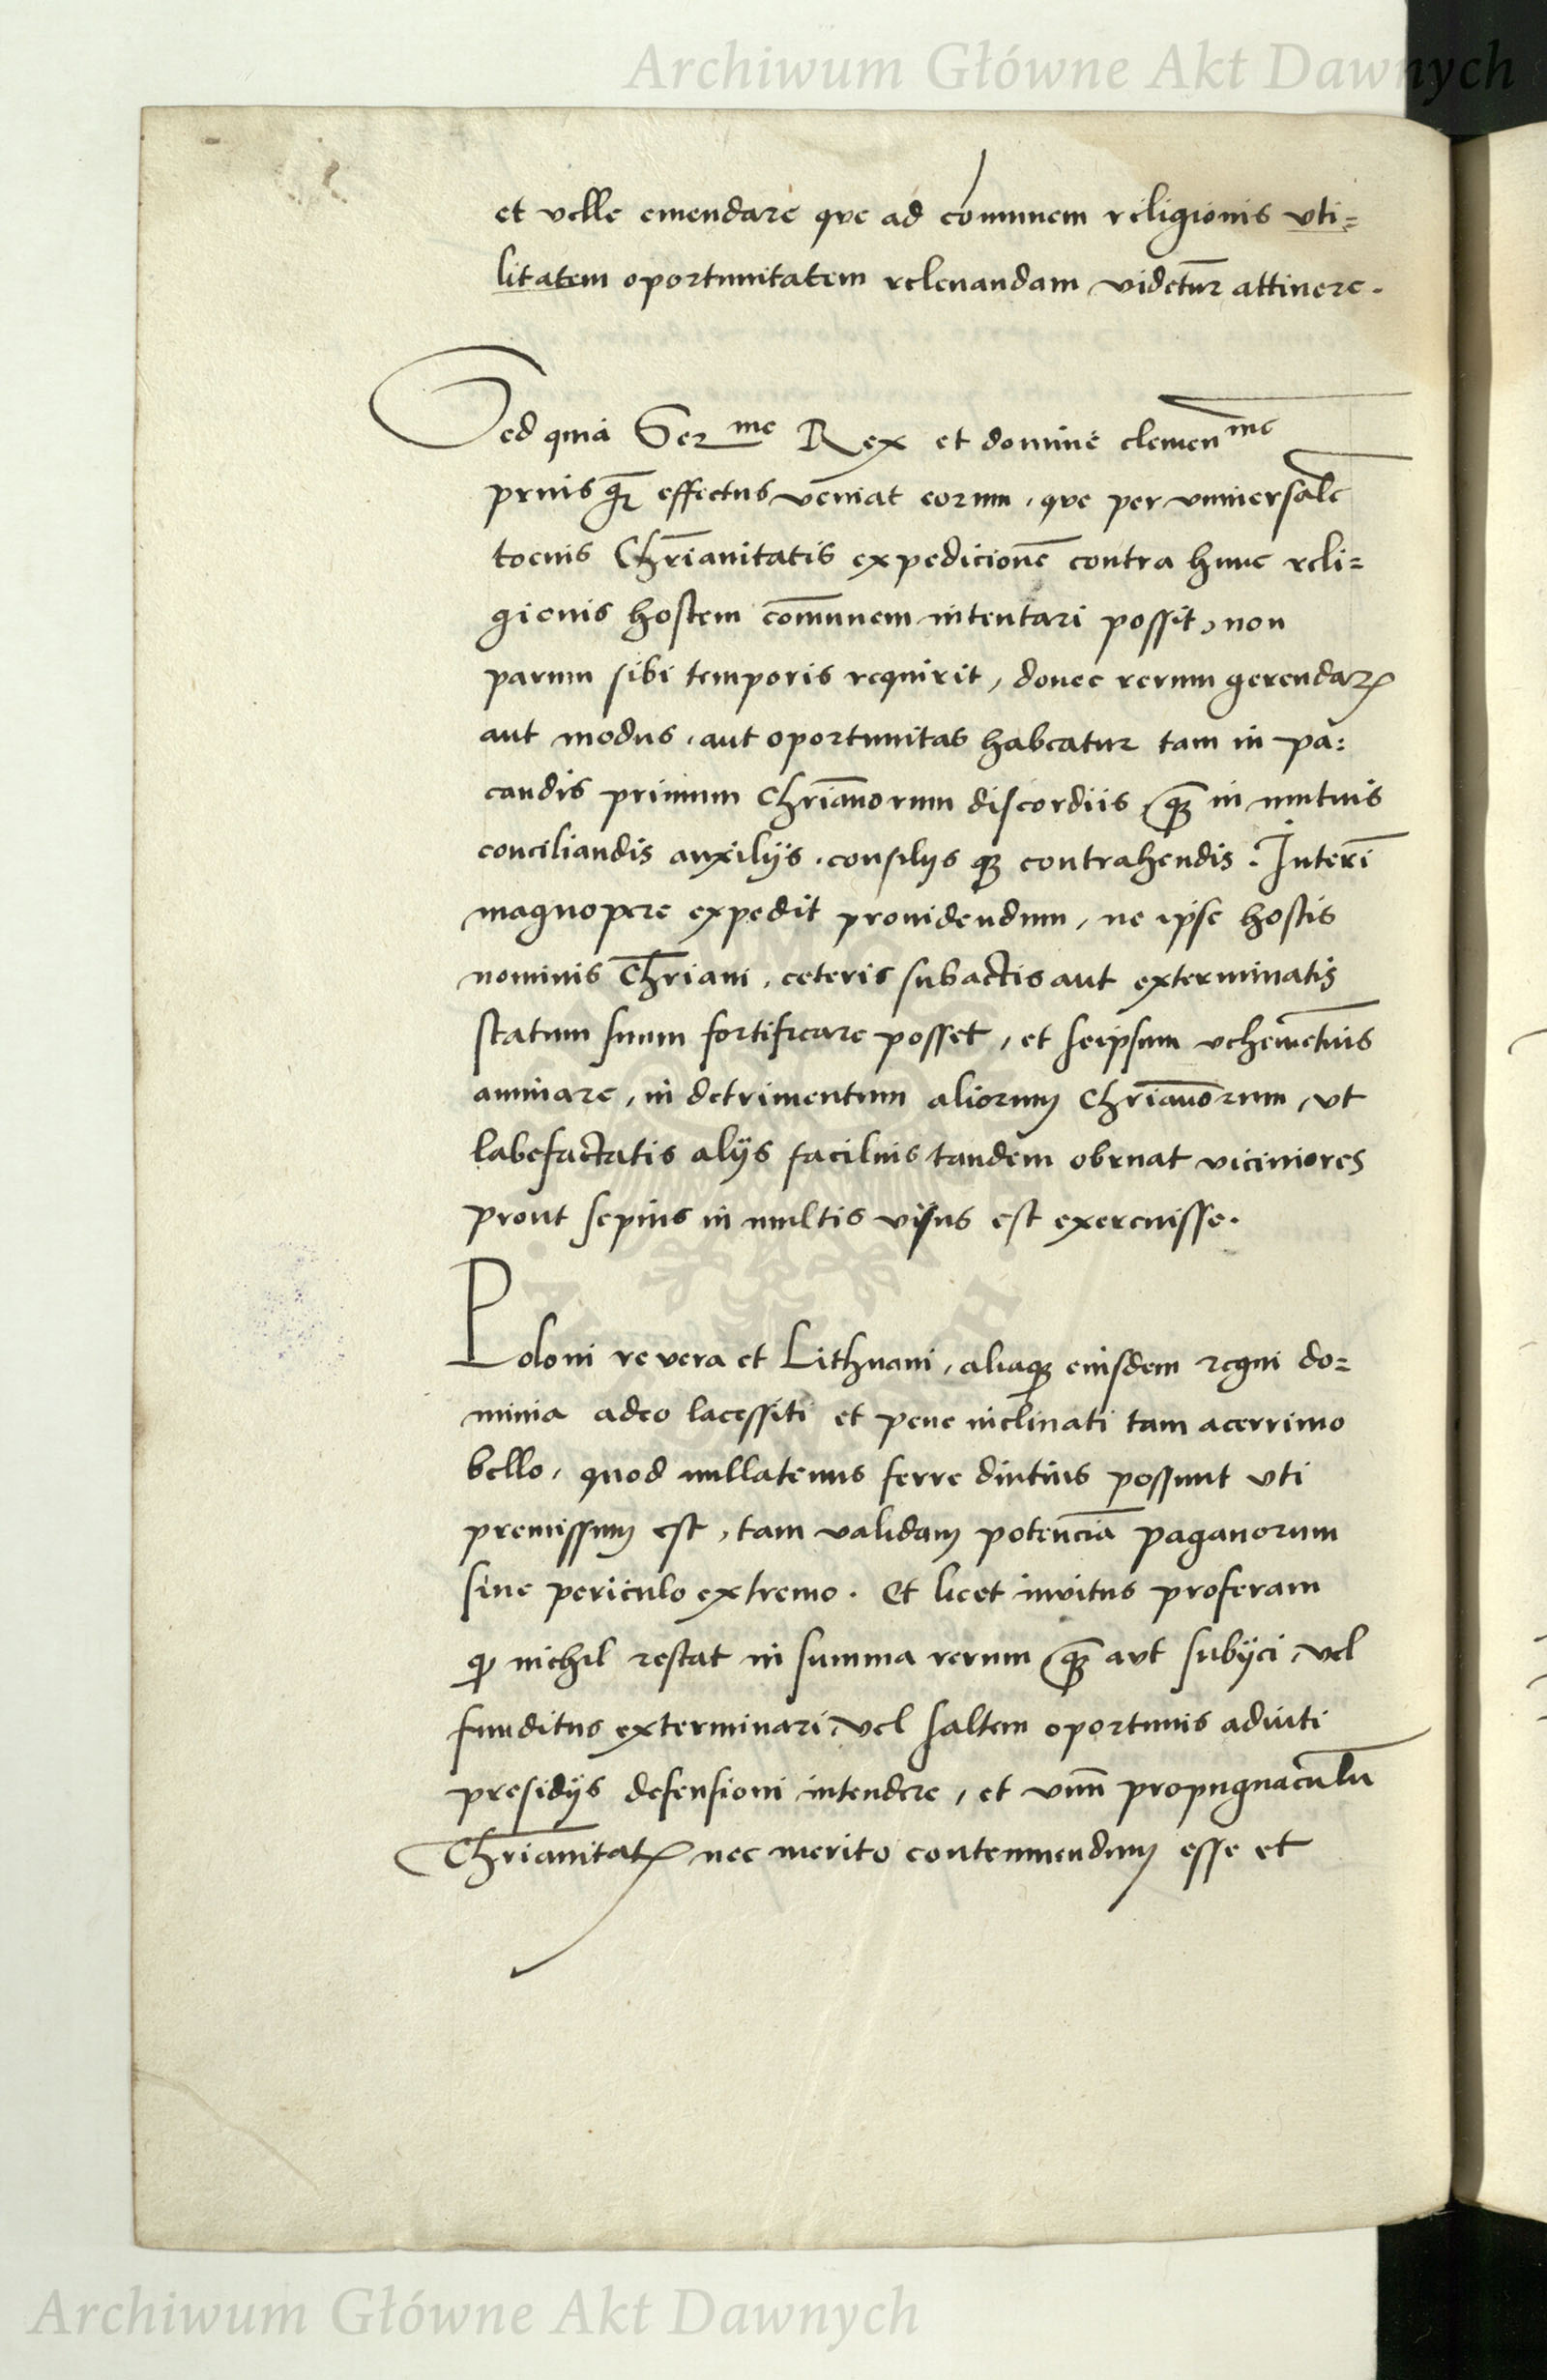 Archiwum Główne Akt Dawnych
et velle emendare que ad com̄unem religionis vti=
litatem oportunitatem relevandam videtur attinere.
Sed quia Ser^me Rex et domine clemen^me
priusq̃ effectus veniat eorum, que per vniuersalē
tocius Chr̄ianitatis expedicionē contra hunc reli=
gionis hostem com̄unem intentari possit, non
parum sibi temporis requirit, donec rerum gerendaꝝ
aut modus, aut oportunitas habeatur tam in pa=
candis primum chr̄ianorum discordiis q̃ in mutuis
conciliandis auxilijs, consilijs qꝫ contrahendis. Interī
magnopere expedit prouidendum, ne ipse hostis
nominis Chr̄iani, ceteris subactis aut exterminatis
statum suum fortificare posset, et seipsum vehemētius
animare, in detrimentum aliorum chr̄ianorum, vt
labefactatis alijs facilius tandem obruat viciniores
prout sepius in multis visus est exercuisse.
Poloni re vera et Lithuani, aliaqꝫ eiusdem regni do=
minia adeo lacessiti et pene inclinati tam acerrimo
bello, quod nullatenus ferre diutius possunt vti
premissum est, tam validam potenciā paganorum
sine periculo extremo. Et licet inuitus proferam
ꝙ nichil restat in summa rerum q̃ aut subijci, vel
funditus exterminari, vel saltem oportunis adiuti
presidijs defensioni intendere, et vnū propugnaculū
Chr̄ianitatꝭ nec merito contemnendum esse et
Archiwum Główne Akt Dawnych